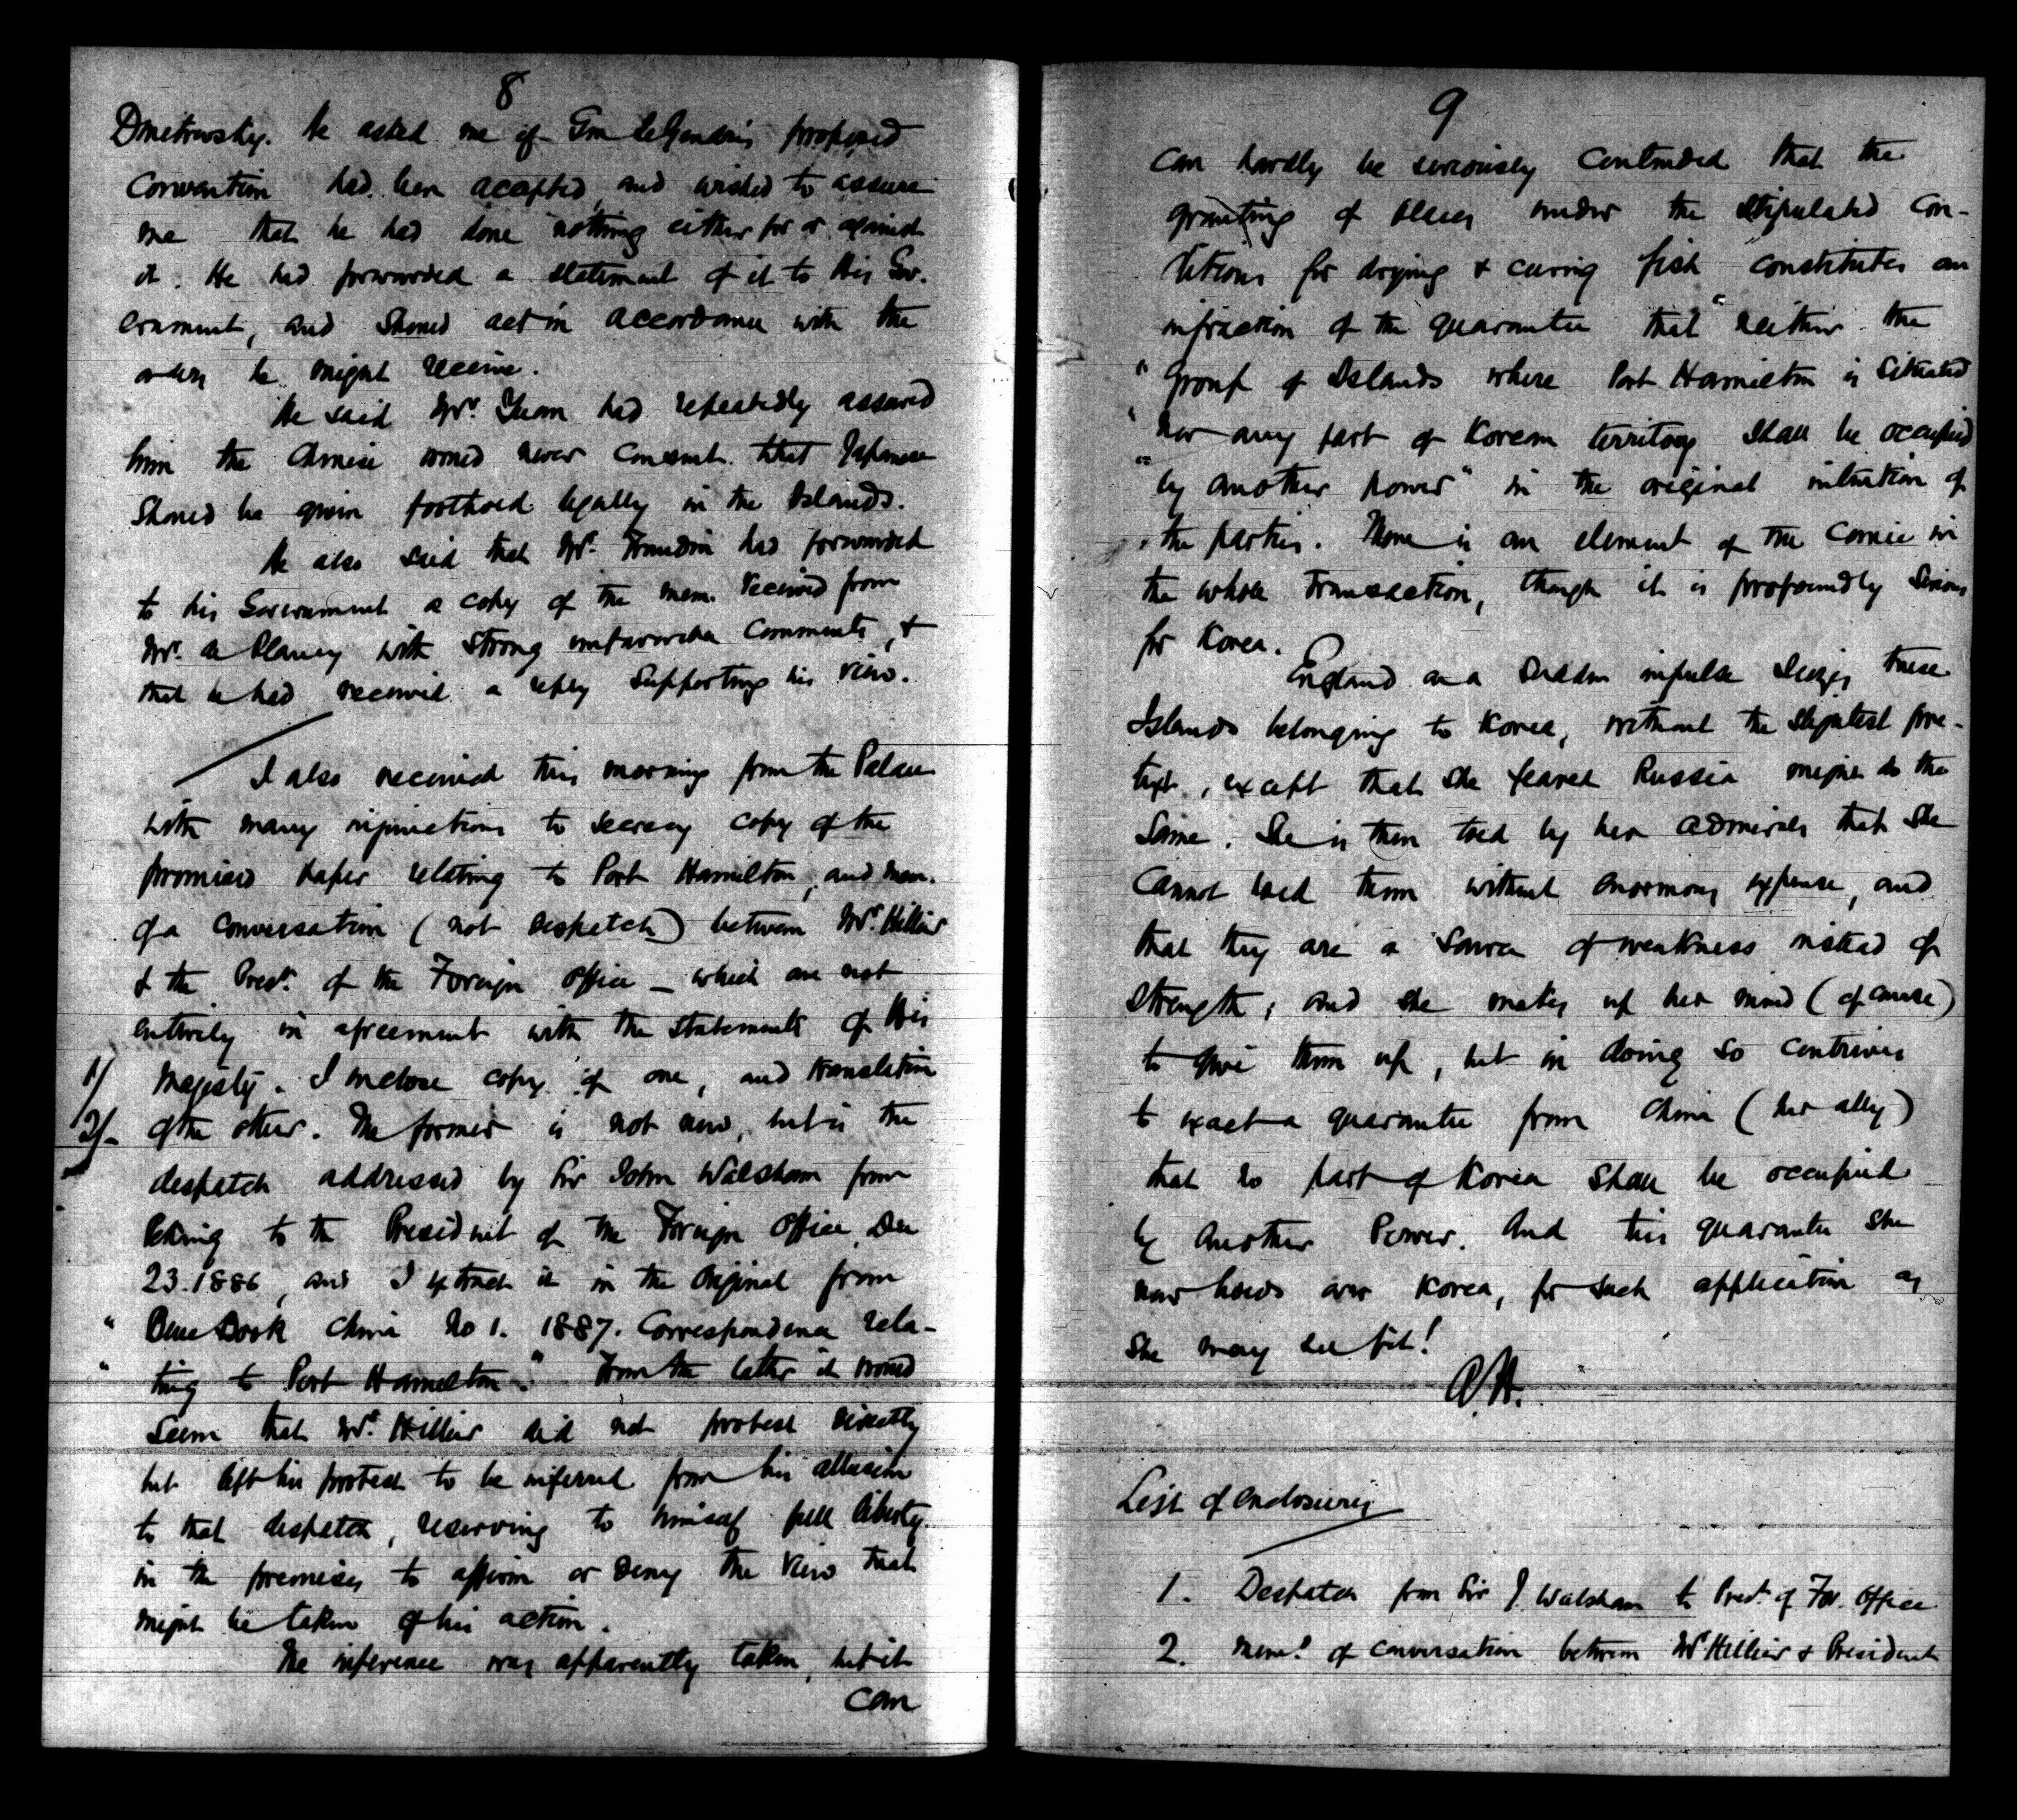 8
Dmetrevsky. He asked me if Gen LeGendre's proposed
Convention had been accepted, and wished to assure
me that he had done nothing either for or against
it. He had forwarded a statement of it to his Gov-
ernment, and should act in accordance with the
orders he might receive.
He said Mr. Yuan had repeatedly assured
him the Chinese would never consent that Japanese
should be given foothold legally in the Islands.
He also said that Mr. Frandin had forwarded
to his Government a copy of the mem. received from
Mr. de Plancy with strong unfavorable comments, &
that he had received a reply supporting his view.
I also received this morning from the Palace
with many injunctions to secrecy copy of the
promised paper relating to Port Hamilton, and mem.
of a conversation (not despatch) between Mr. Hillier
& the Presdt. of the Foreign Office — which are not
entirely in agreement with the statements of His
1/ Majesty. I inclose copy of one, and translation
2/- of the other. The former is not new, but is the
despatch addressed by Sir John Walsham from
Peking to the President of the Foreign Office Dec
23. 1886, and I extract it in the original from
" Blue Book China No 1. 1887. Correspondence rela-
" ting to Port Hamilton." From the latter it would
seem that Mr. Hillier did not protest directly
but left his protest to be inferred from his allusion
to that despatch, reserving to himself full liberty
in the premises to affirm or deny the view that
might be taken of his action.
The inference was apparently taken, but it
can
9
can hardly be seriously contended that the
granting of places under the stipulated con-
ditions for drying & curing fish constitutes an
infraction of the guarantee that "neither the
" group of Islands where Port Hamilton is situated
" nor any part of Korean territory shall be occupied
" by another power" in the original intention of
the parties. There is an element of the comic in
the whole transaction, though it is profoundly serious
for Korea.
England on a sudden impulse seizes these
Islands belonging to Korea, without the slightest pre-
text, except that she feared Russia might do the
same. She is then told by her admirals that she
cannot hold them without enormous expense, and
that they are a source of weakness instead of
strength; and she makes up her mind (of course)
to give them up, but in doing so contrives
to exact a guarantee from China (her ally)
that no part of Korea shall be occupied
by another Power. And this guarantee she
now holds over Korea, for such application as
she may see fit!
A.H.
List of enclosures
1. Despatch from Sir J. Walsham to Presdt. of For. Office
2. Memo. of conversation between Mr Hillier & President